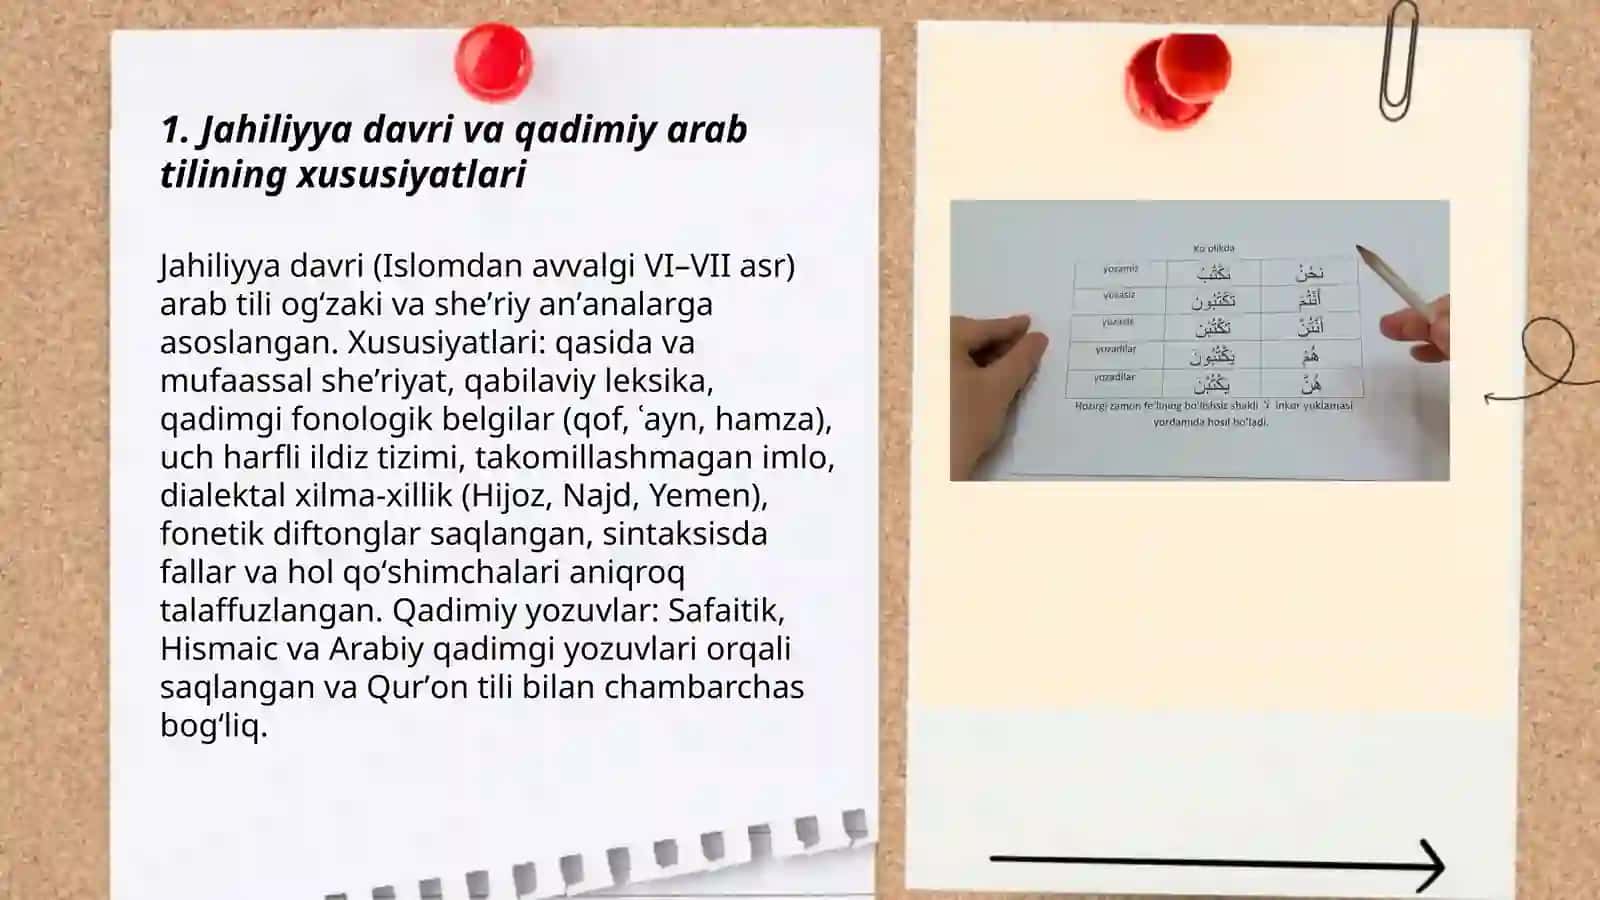 1. Jahiliyya davri va qadimiy arab
tilining xususiyatlari
Jahiliyya davri (Islomdan avvalgi VI–VII asr)
arab tili og‘zaki va she’riy an’analarga
asoslangan. Xususiyatlari: qasida va
mufaassal she’riyat, qabilaviy leksika,
qadimgi fonologik belgilar (qof, ʿayn, hamza),
uch harfli ildiz tizimi, takomillashmagan imlo,
dialektal xilma-xillik (Hijoz, Najd, Yemen),
fonetik diftonglar saqlangan, sintaksisda
fallar va hol qo‘shimchalari aniqroq
talaffuzlangan. Qadimiy yozuvlar: Safaitik,
Hismaic va Arabiy qadimgi yozuvlari orqali
saqlangan va Qur’on tili bilan chambarchas
bog‘liq.
Ko'plikda
yozamiz نَكْتُبُ نَحْنُ
yozasiz تَكْتُبُونَ أَنْتُمْ
تَكْتُبْنَ أَنْتُنَّ
yozadilar يَكْتُبُونَ هُمْ
yozadilar يَكْتُبْنَ هُنَّ
Hozirgi zamon fe'lining bo'lishsiz shakli لا inkor yuklamasi
yordamida hosil bo'ladi.